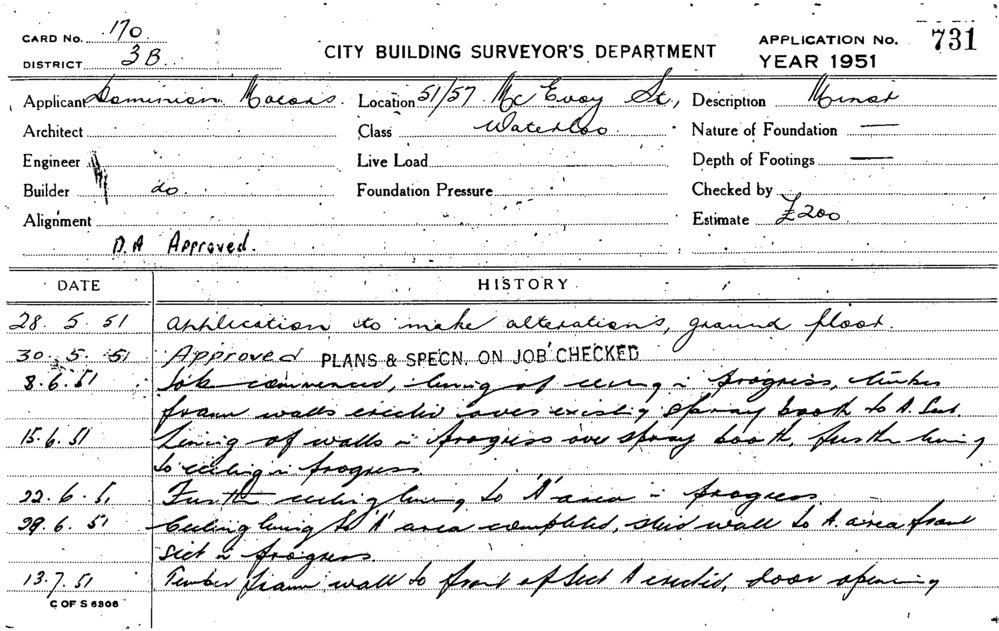 CARD No. 170
DISTRICT 3B
CITY BUILDING SURVEYOR'S DEPARTMENT
APPLICATION No. 731
YEAR 1951
Applicant Dominion Motors. Location 51/57 McEvoy St, Description Minor
Architect Class Waterloo Nature of Foundation —
Engineer Live Load Depth of Footings —
Builder do Foundation Pressure Checked by
Alignment Estimate £200
D.A Approved.
DATE HISTORY
28. 5. 51 Application to make alterations, ground floor.
30. 5. 51 Approved PLANS & SPECN. ON JOB CHECKED
8. 6. 51 Job commenced, lining of ceiling in progress, timber
frame walls erected over existing spray booth to A. Sect
15. 6. 51 Lining of walls in progress over spray booth, further lining
to ceiling in progress
22. 6. 51 Further ceiling lining to 'A' area in progress
29. 6. 51 Ceiling lining to 'A' area completed, wall to A. area front
sect in progress.
13. 7. 51 Timber frame wall to front of Sect A erected, door opening
C OF S 6306